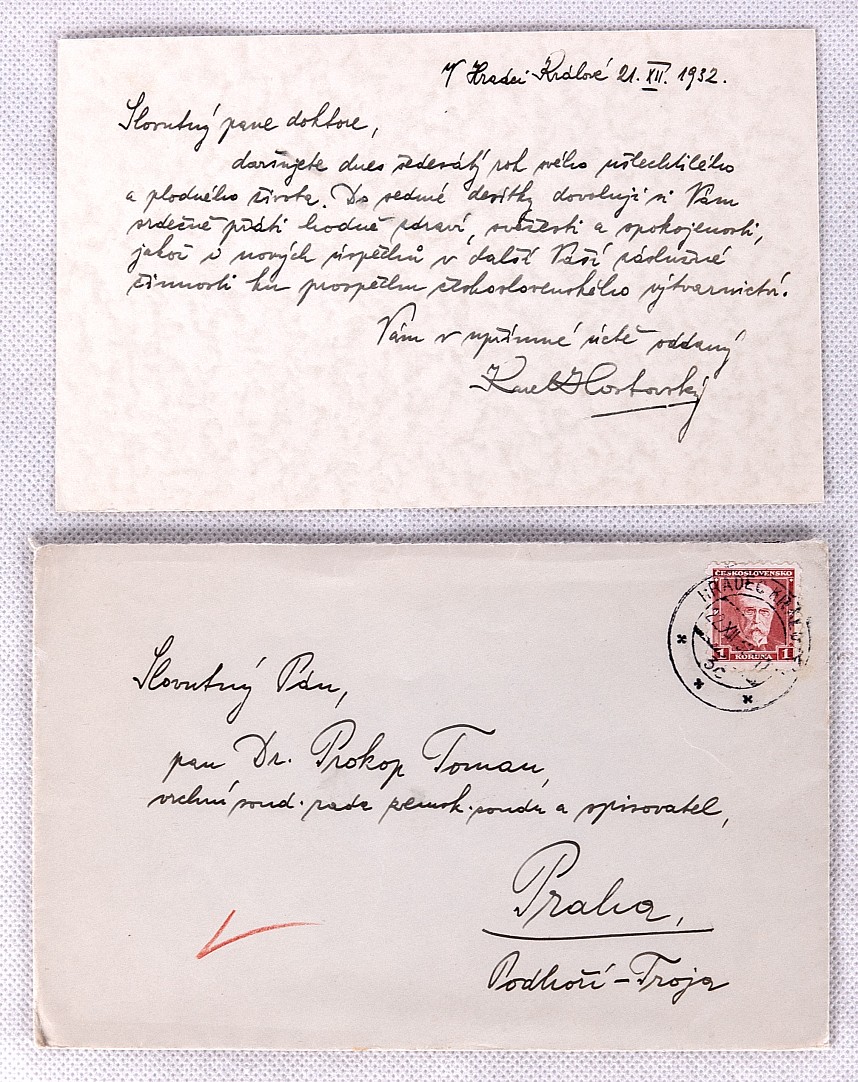 V Hradci Králové 21. XII. 1932.
Slovutný pane doktore,
dovršujete dnes šedesátý rok svého ušlechtilého
a plodného života. Do sedmé desítky dovoluji si Vám
srdečně přáti hodně zdraví, svěžesti a spokojenosti,
jakož i nových úspěchů v další Vaší záslužné
činnosti ku prospěchu československého výtvarnictví.
Vám v upřímné úctě oddaný
Karel Hostovský
ČESKOSLOVENSKO
HRADEC KRÁLOVÉ
1 KORUNA 1
Slovutný Pán,
pan Dr. Prokop Toman,
vrchní soud. rada zemsk. soudu a spisovatel,
Praha,
Podhoří - Troja